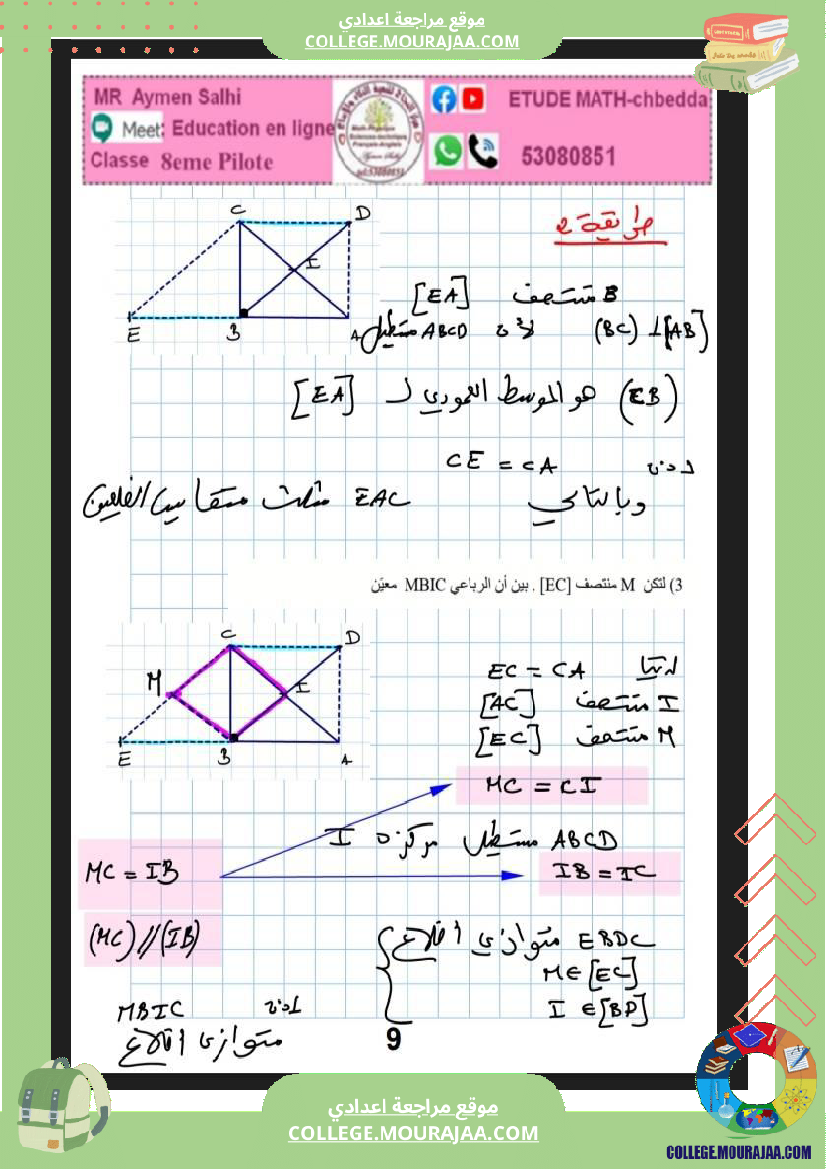 موقع مراجعة اعدادي
COLLEGE.MOURAJAA.COM
MR Aymen Salhi
Meet: Education en ligne
Classe 8eme Pilote
ETUDE MATH-chbedda
53080851
طريقة 2
C D
I
E B A
B منتصف [EA]
(BC) ⊥ [AB] لأن ABCD مستطيل
(EB) هو الموسط العمودي لـ [EA]
إذن CE = CA
وبالتالي EAC مثلث متقايس الضلعين
3) لتكن M منتصف [EC] . بين أن الرباعي MBIC معيّن
C D
M I
E B A
لدينا EC = CA
I منتصف [AC]
M منتصف [EC]
MC = CI
ABCD مستطيل مركزه I
MC = IB
IB = IC
(MC) // (IB)
EBDC متوازي اضلاع
M ∈ [EC]
I ∈ [BD]
إذن MBIC
متوازي اضلاع
9
موقع مراجعة اعدادي
COLLEGE.MOURAJAA.COM
COLLEGE.MOURAJAA.COM